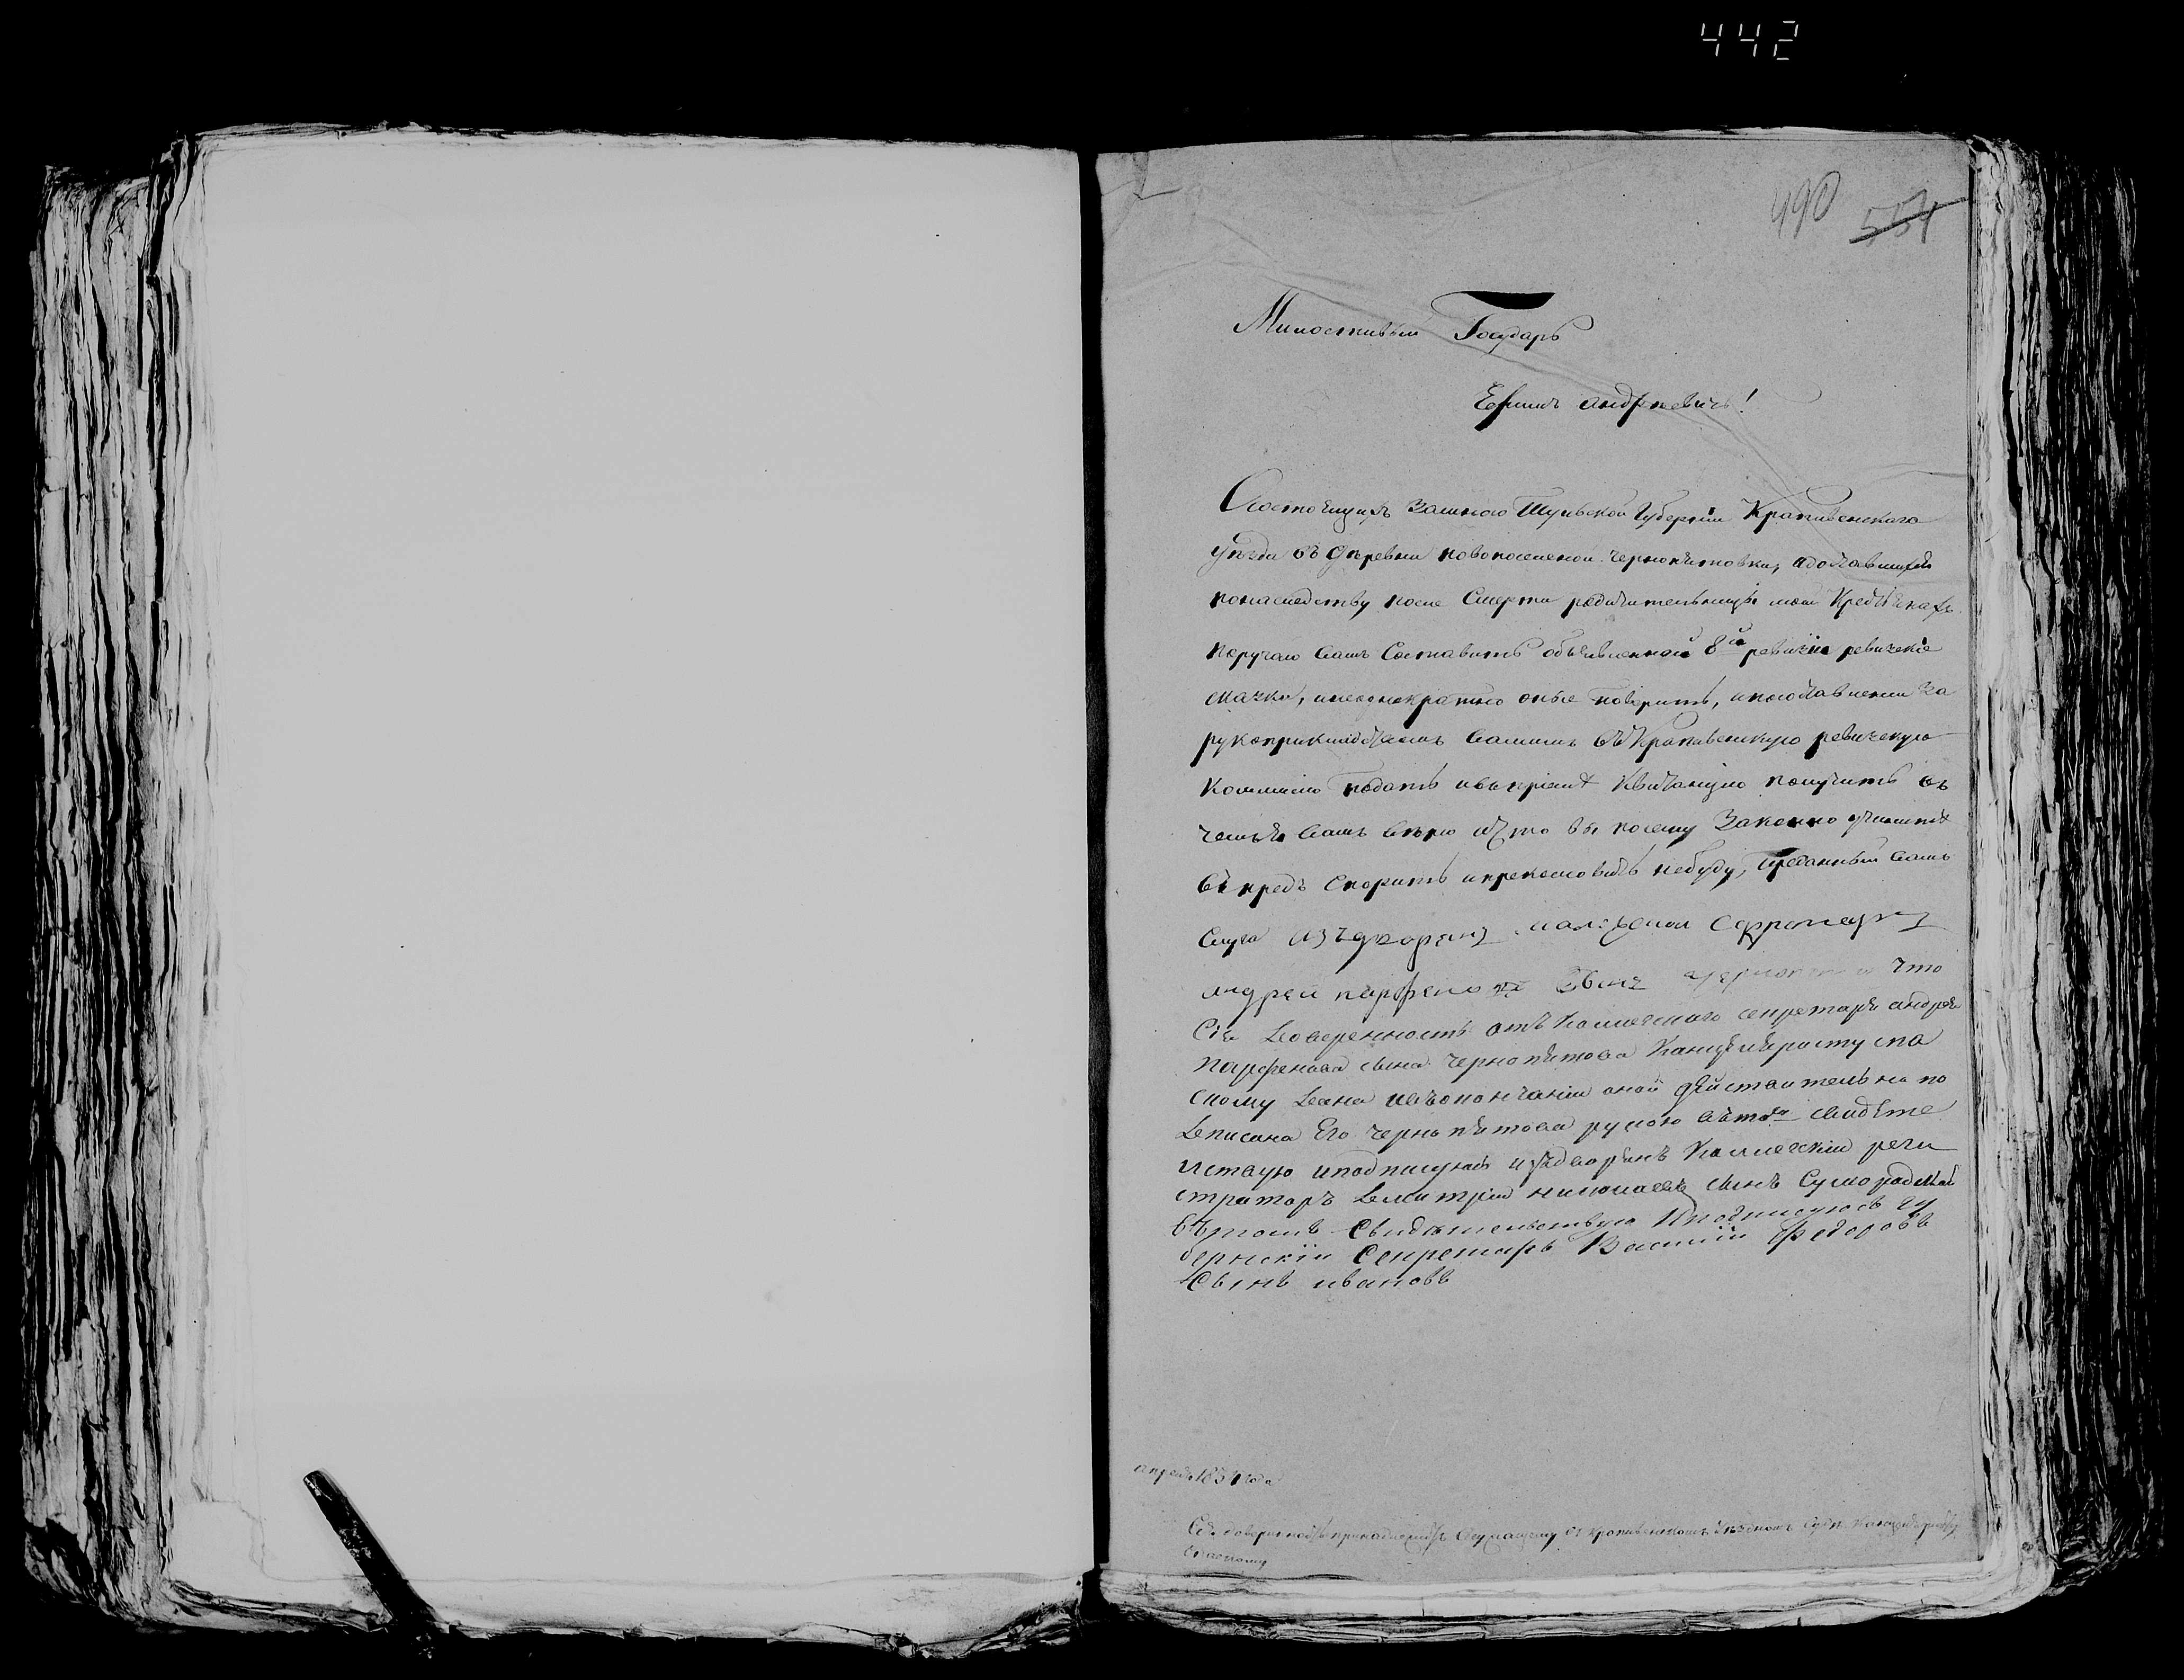 442
490 554
Милостивый Государь
Ефимъ андреевичь!
Состоящихъ Замною Тульской Губернїи Крапивенскаго
уѣзда въ деревни новопоселеной чернопятовки, адоставшихся
понаследству после Смерти родительницы моей Крестьянахъ
поручаю вамъ Составить объявленной 8й ревизїи ревизскїе
сказки, инеоднократно оные поверить, ипосоставлении За
рукоприкладствомъ вашимъ въ Крапивенскую ревизскую
Коммисїю подать ивъ прїеме Квитанцїю получить въ
чемъ я вамъ верю ичто вы посему Законно учините
въ предь спорить ипрекословить небуду, Преданный вамъ
Слуга изъ дворянъ
андрей парфеновъ Сынъ что
Сїя доверенность отъ Коллежскаго секретаря андрея
парфенова сына чернопятова Канцеляристу спа
скому дана ивъокончанїи оной действительно по
дписана Его чернопятова рукою въ томъ свидѣте
лствую иподписуюсь изъдворянъ Коллежскїй реги
страторъ Дмитрїй николаевъ сынъ Сумороцкой
въ томъ свидѣтельствую иподписуюсь гу
бернскїй Секретарь Василїй Федоровъ
Сынъ ивановъ
апреля 1834 года
Сїя доверенность принадлежитъ Служащему въ крапивенскомъ Уѣздномъ Судѣ Канцеляристу
Спаскому